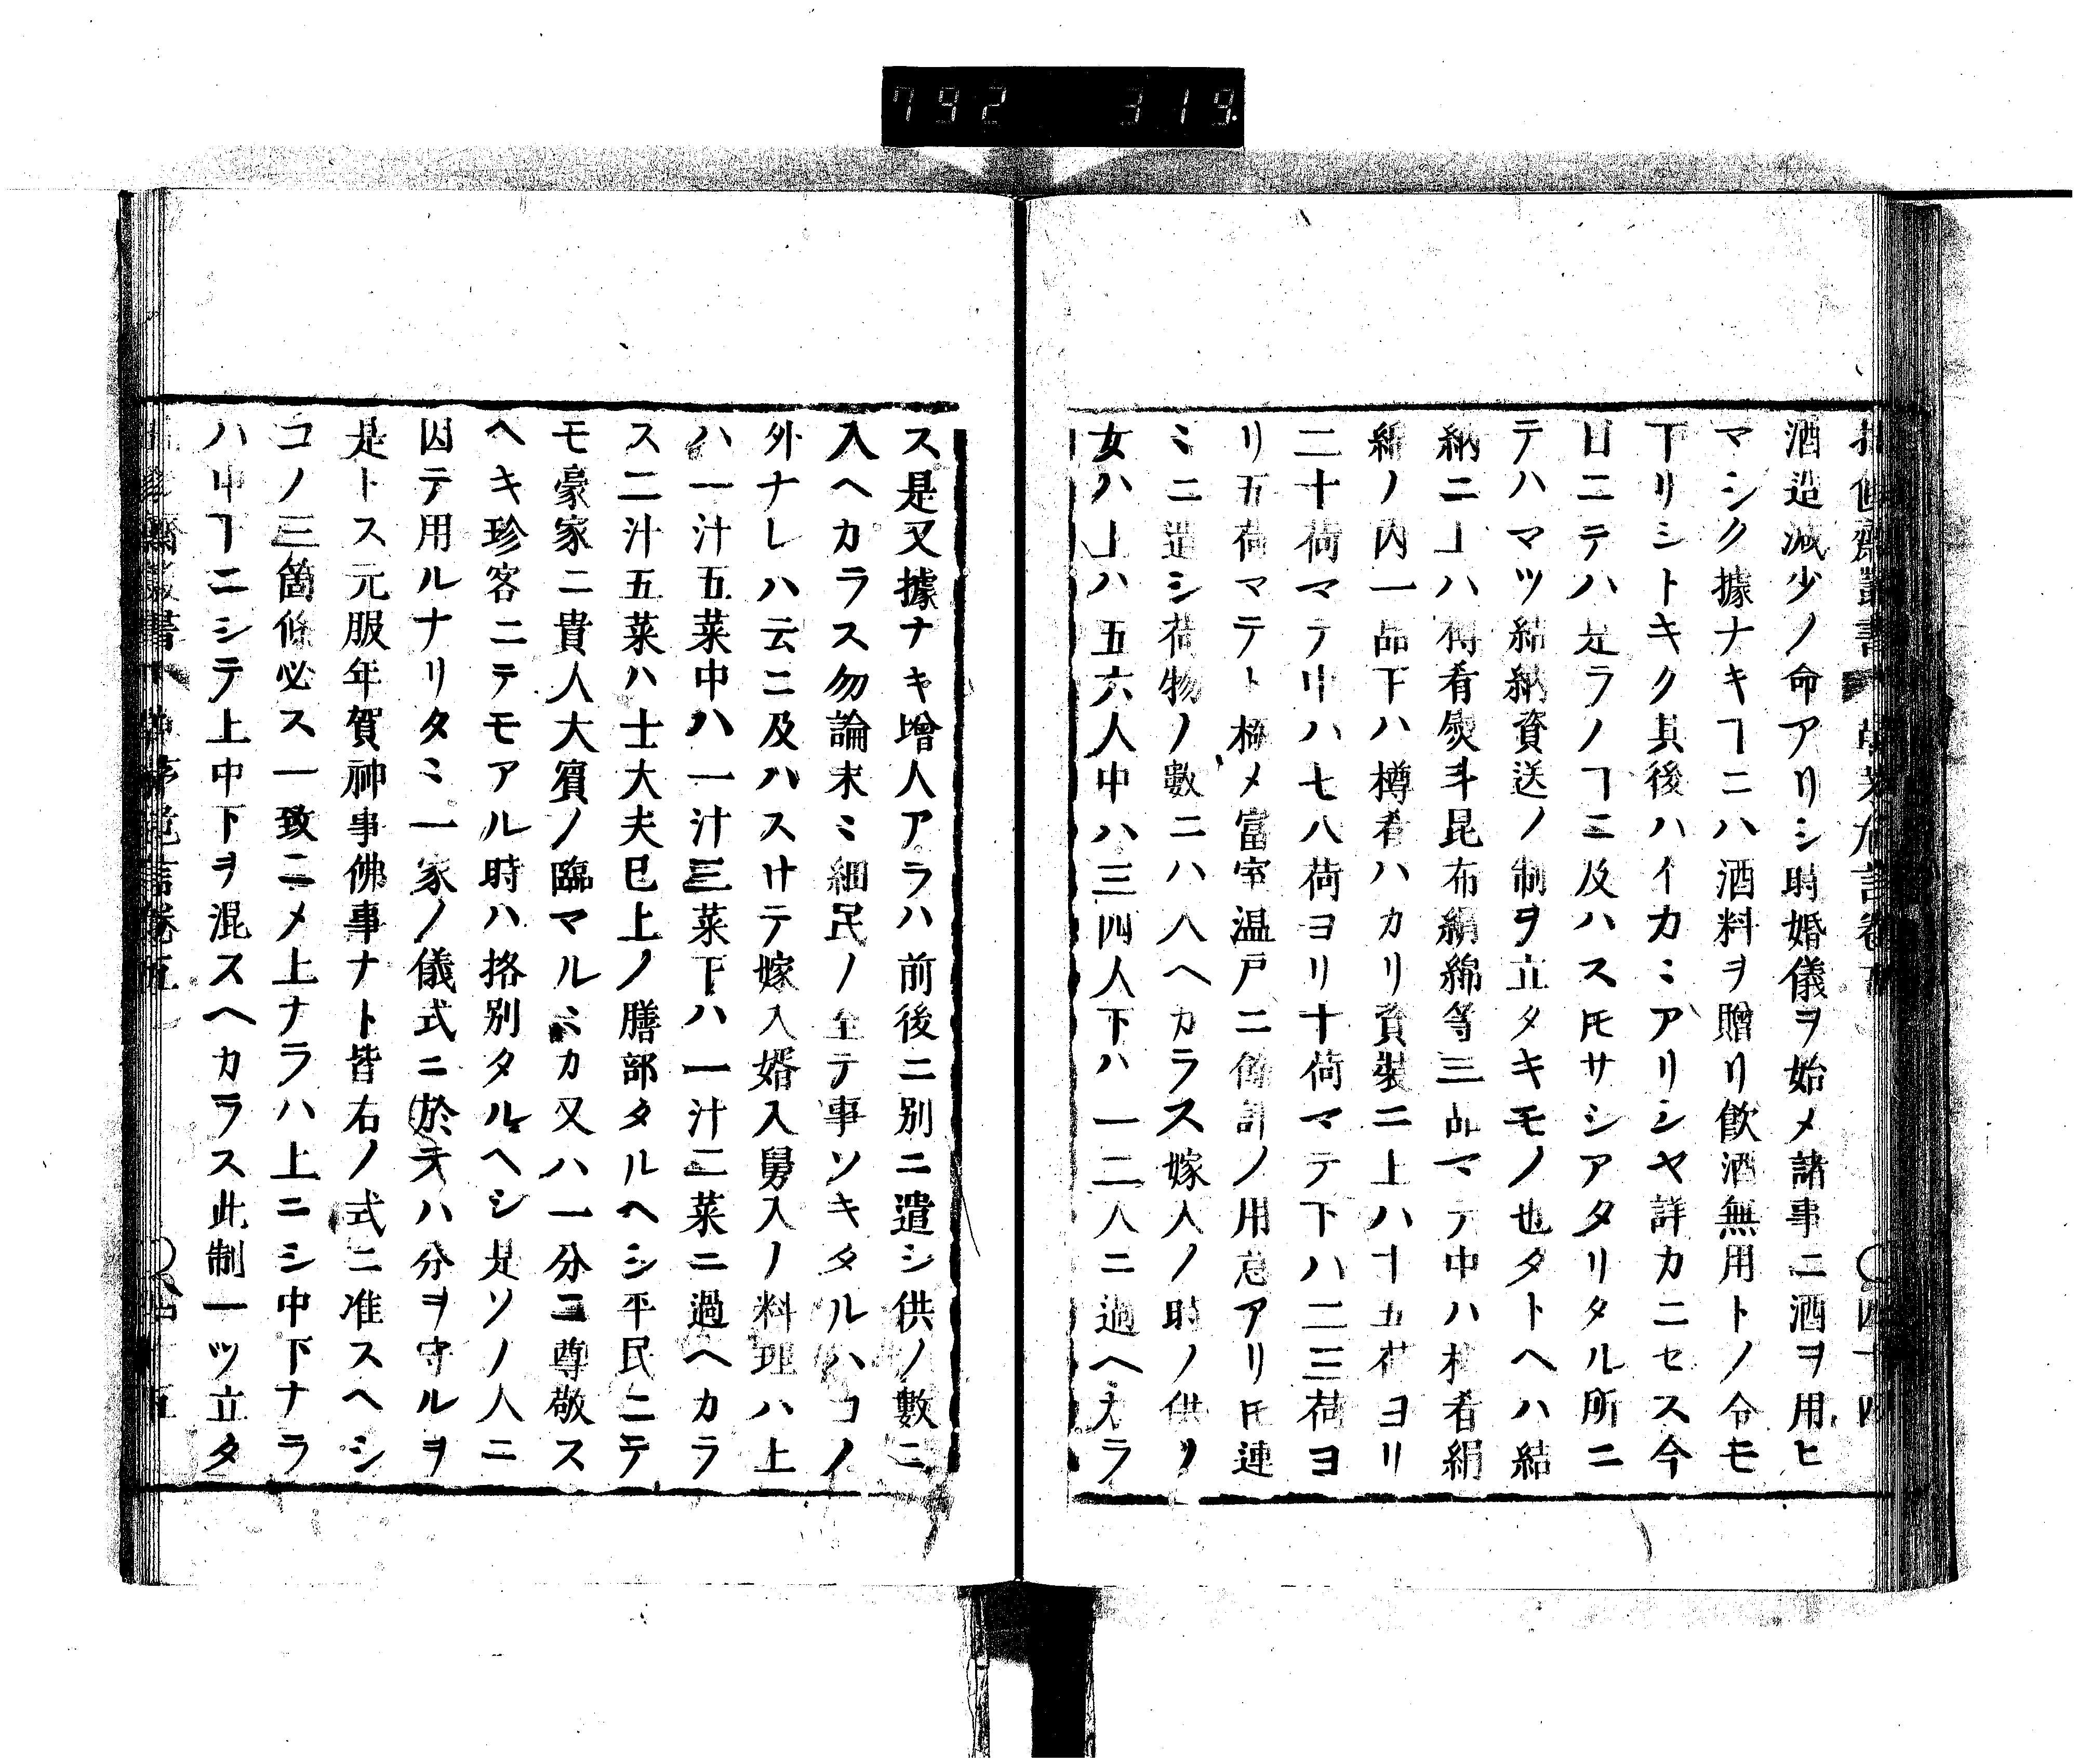 792 319.
酒造減少ノ命アリシ時婚儀ヲ始メ諸事ニ酒ヲ用ヒ
マシク據ナキヿニハ酒料ヲ贈リ飲酒無用トノ令モ
下リシトキク其後ハイカミアリシヤ詳カニセス今
日ニテハ是ラノヿニ及ハスㇳモサシアタリタル所ニ
テハマツ結納資送ノ制ヲ立タキモノ也タトヘハ結
納ニ上ハ樽肴熨斗昆布絹綿等三品マテ中ハ樽肴絹
綿ノ内一品下ハ樽肴ハカリ資装ニ上ハ十五荷ヨリ
二十荷マテ中ハ七八荷ヨリ十荷マテ下ハ二三荷ヨ
リ五荷マテト極メ富室温戸ニ計ノ用意アリㇳモ連
ミニ造シ荷物ノ數ニハ入ヘカラス嫁入ノ時ノ供リ
女ハ上ハ五六人中ハ三四人下ハ一二人ニ過ヘカラ
ス是又據ナキ増人アラハ前後ニ別ニ遣シ供ノ數ニ
入ヘカラス勿論末ミ細民ノ至テ事ソキタルハコノ
外ナレハ云ニ及ハスサテ嫁入婿入舅入ノ料理ハ上
ハ一汁五菜中ハ一汁三菜下ハ一汁二菜ニ過ヘカラ
ス二汁五菜ハ士大夫已上ノ膳部タルヘシ平民ニテ
モ豪家ニ貴人大賓ノ臨マルミカ又ハ一分ニ尊敬ス
ヘキ珍客ニテモアル時ハ挌別タルヘシ是ソノ人ニ
因テ用ルナリタミ一家ノ儀式ニ於テハ分ヲ守ルヲ
是トス元服年賀神事佛事ナト皆右ノ式ニ准スヘシ
コノ三箇條必ス一致ニメ上ナラハ上ニシ中下ナラ
ハ中下ニシテ上中下ヲ混スヘカラス此制一ツ立タ